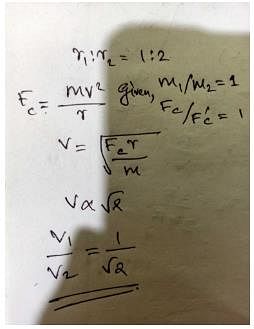 r₁:r₂ = 1:2
F_c = mv²/r given, m₁/m₂ = 1
F_c/F'_c = 1
V = √(F_c r/m)
V ∝ √r
V₁/V₂ = 1/√2